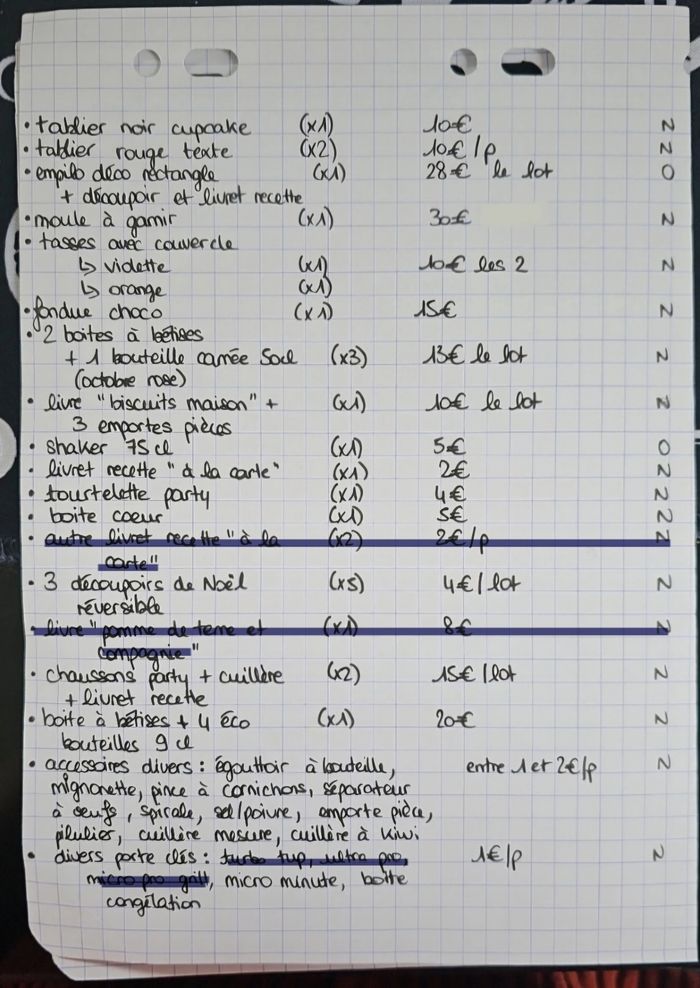 • tablier noir cupcake (x1) 10€ N
• tablier rouge texte (x2) 10€/p N
• empilo déco rectangle (x1) 28€ le lot O
+ découpoir et livret recette
• moule à garnir (x1) 30€ N
• tasses avec couvercle
↳ violette (x1) 10€ les 2 N
↳ orange (x1)
• fondue choco (x1) 15€ N
• 2 boites à bêtises
+ 1 bouteille carrée 50cl (x3) 13€ le lot N
(octobre rose)
• livre "biscuits maison" + (x1) 10€ le lot N
3 emportes pièces
• shaker 75cl (x1) 5€ O
• livret recette "à la carte" (x1) 2€ N
• tourtelette party (x1) 4€ N
• boite coeur (x1) 5€ N
• autre livret recette "à la (x2) 2€/p N
carte"
• 3 découpoirs de Noël (x5) 4€/lot N
réversible
• livre "pomme de terre et (x1) 8€ N
compagnie"
• chaussons party + cuillère (x2) 15€/lot N
+ livret recette
• boite à bêtises + 4 éco (x1) 20€ N
bouteilles 9cl
• accessoires divers : égouttoir à bouteille, entre 1 et 2€/p N
mignonette, pince à cornichons, séparateur
à oeufs, spirale, sel/poivre, emporte pièce,
pilulier, cuillère mesure, cuillère à kiwi
• divers porte clés : turbo tup, ultra pro, 1€/p N
micro pro grill, micro minute, boîte
congélation